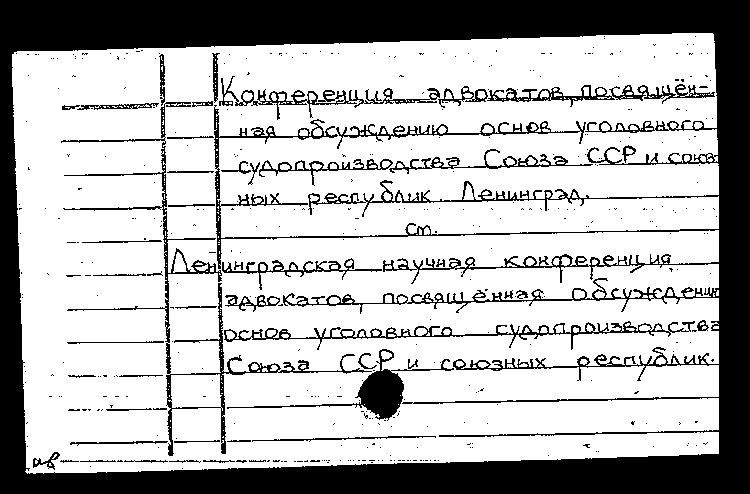 Конференция адвокатов, посвящён-
ная обсуждению основ уголовного
судопроизводства Союза ССР и союз
ных республик. Ленинград.
см.
Ленинградская научная конференция
адвокатов, посвящённая обсуждению
основ уголовного судопроизводства
Союза ССР и союзных республик.